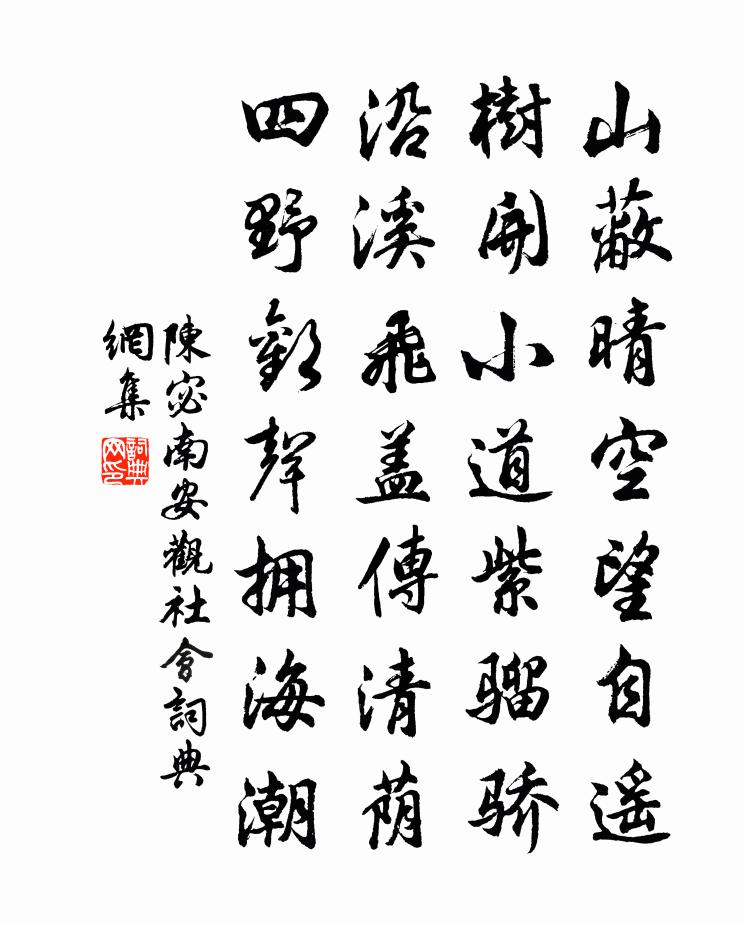 山蔽晴空望自遥
樹開小道紫骝骄
沿溪飛盖傳清荫
四野歡聲拥海潮
陳宓南安觀社會詞典
網集
詞典
网印